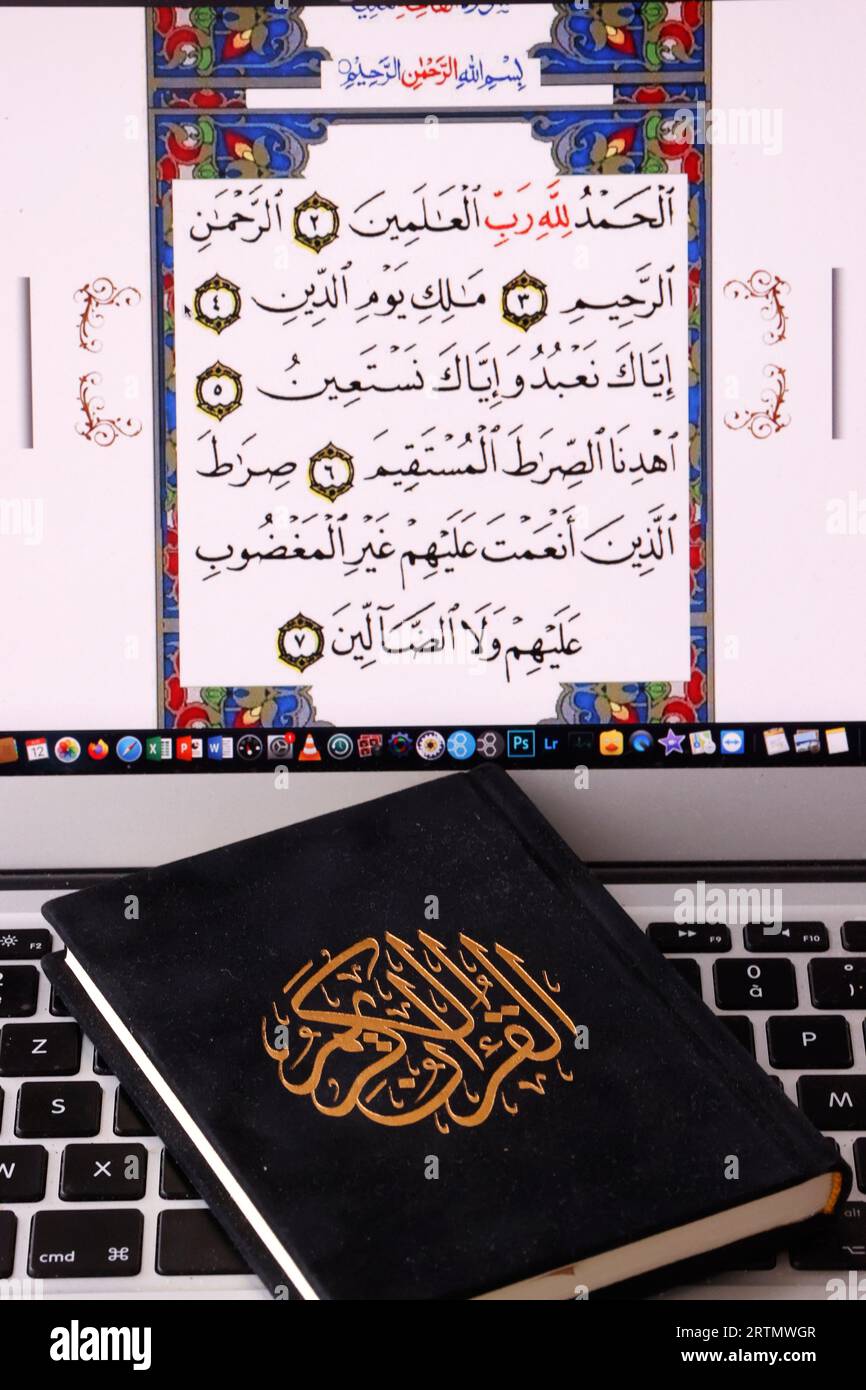 بِسْمِ اللهِ الرَّحْمٰنِ الرَّحِيْمِ
ٱلْحَمْدُ لِلَّهِ رَبِّ ٱلْعَـٰلَمِينَ ٢ ٱلرَّحْمَـٰنِ
ٱلرَّحِيمِ ٣ مَـٰلِكِ يَوْمِ ٱلدِّينِ ٤
إِيَّاكَ نَعْبُدُ وَإِيَّاكَ نَسْتَعِينُ ٥
ٱهْدِنَا ٱلصِّرَٰطَ ٱلْمُسْتَقِيمَ ٦ صِرَٰطَ
ٱلَّذِينَ أَنْعَمْتَ عَلَيْهِمْ غَيْرِ ٱلْمَغْضُوبِ
عَلَيْهِمْ وَلَا ٱلضَّآلِّينَ ٧
12 Ps Lr
القرآن الكريم
F2 F9 F10
Z 0 à )
S P
W X M
cmd ⌘ alt
alamy
Image ID: 2RTMWGR
www.alamy.com